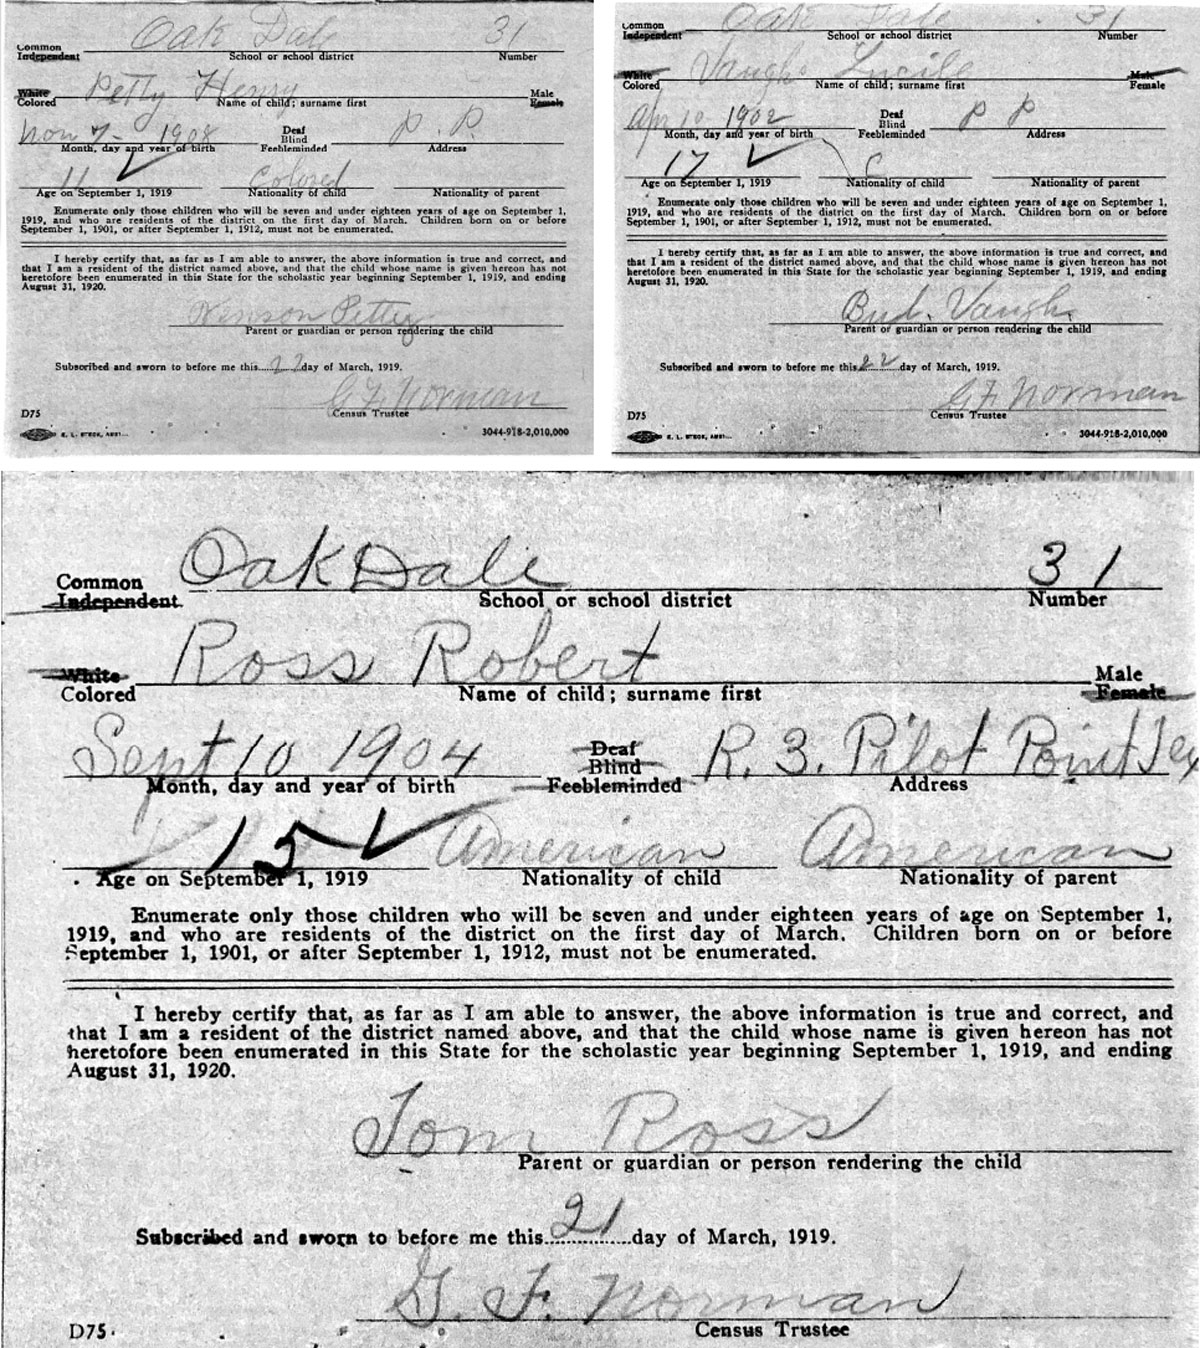 Oak Dale 31
Common
Independent School or school district Number
Petty Henry
White Male
Colored Name of child; surname first Female
Nov 7- 1908 Deaf P. P.
Blind
Month, day and year of birth Feebleminded Address
11 Colored
Age on September 1, 1919 Nationality of child Nationality of parent
Enumerate only those children who will be seven and under eighteen years of age on September 1,
1919, and who are residents of the district on the first day of March. Children born on or before
September 1, 1901, or after September 1, 1912, must not be enumerated.
I hereby certify that, as far as I am able to answer, the above information is true and correct, and
that I am a resident of the district named above, and that the child whose name is given hereon has not
heretofore been enumerated in this State for the scholastic year beginning September 1, 1919, and ending
August 31, 1920.
Petty
Parent or guardian or person rendering the child
Subscribed and sworn to before me this 22 day of March, 1919.
G. F. Norman
D75 Census Trustee
E. L. STECK, 3044-918-2,010,000
Oak Dale 31
Common
Independent School or school district Number
Vaughn Lucile
White Male
Colored Name of child; surname first Female
Apr 10 1902 Deaf P P
Blind
Month, day and year of birth Feebleminded Address
17 C
Age on September 1, 1919 Nationality of child Nationality of parent
Enumerate only those children who will be seven and under eighteen years of age on September 1,
1919, and who are residents of the district on the first day of March. Children born on or before
September 1, 1901, or after September 1, 1912, must not be enumerated.
I hereby certify that, as far as I am able to answer, the above information is true and correct, and
that I am a resident of the district named above, and that the child whose name is given hereon has not
heretofore been enumerated in this State for the scholastic year beginning September 1, 1919, and ending
August 31, 1920.
Bud. Vaughn
Parent or guardian or person rendering the child
Subscribed and sworn to before me this 22 day of March, 1919.
G. F. Norman
D75 Census Trustee
E. L. STECK, 3044-918-2,010,000
Oak Dale 31
Common
Independent School or school district Number
Ross Robert
White Male
Colored Name of child; surname first Female
Sept 10 1904 Deaf R. 3. Pilot Point Tex
Blind
Month, day and year of birth Feebleminded Address
15 American American
Age on September 1, 1919 Nationality of child Nationality of parent
Enumerate only those children who will be seven and under eighteen years of age on September 1,
1919, and who are residents of the district on the first day of March. Children born on or before
September 1, 1901, or after September 1, 1912, must not be enumerated.
I hereby certify that, as far as I am able to answer, the above information is true and correct, and
that I am a resident of the district named above, and that the child whose name is given hereon has not
heretofore been enumerated in this State for the scholastic year beginning September 1, 1919, and ending
August 31, 1920.
Tom Ross
Parent or guardian or person rendering the child
Subscribed and sworn to before me this 21 day of March, 1919.
G. F. Norman
D75. Census Trustee